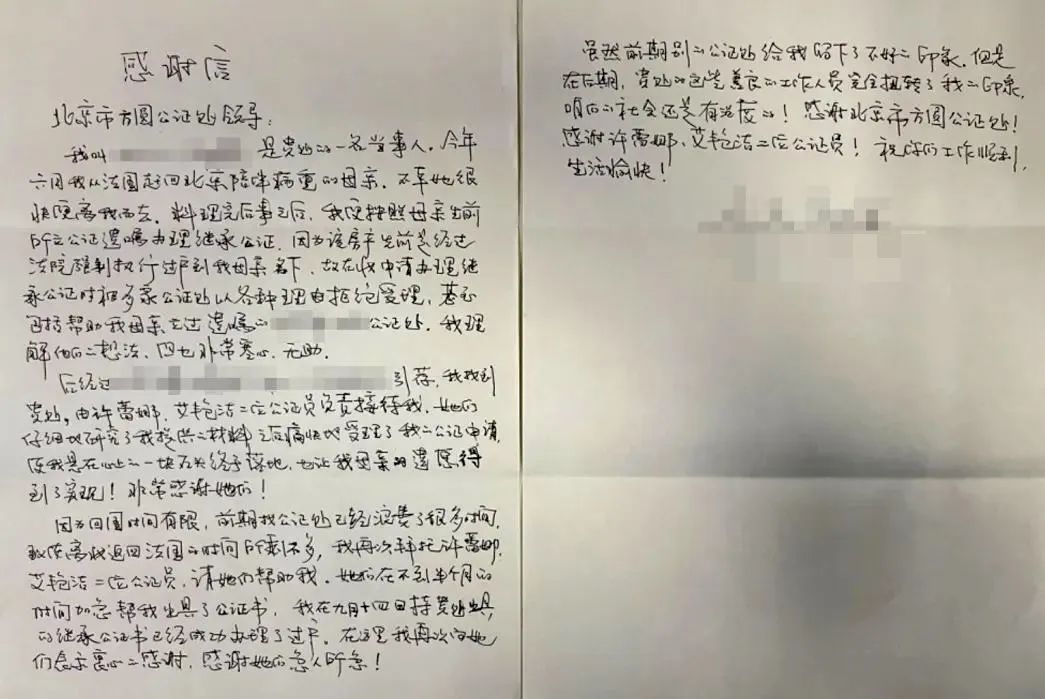 感谢信
北京市方圆公证处领导：
我叫 是贵处的一名当事人。今年
六月我从法国赶回北京陪伴病重的母亲。不幸她很
快便离我而去。料理完后事之后，我便按照母亲生前
所立公证遗嘱办理继承公证。因为该房产生前是经过
法院强制执行过户到我母亲名下，故在我申请办理继
承公证时很多家公证处以各种理由拒绝受理，甚至
包括帮助我母亲立过遗嘱的 公证处。我理
解他们的想法，但也非常寒心、无助。
后经过 引荐，我找到
贵处，由许蕾娜、艾艳洁二位公证员负责接待我。她们
仔细地研究了我提供的材料之后痛快地受理了我的公证申请，
使我悬在心上的一块石头终于落地，也让我母亲的遗愿得
到了实现！非常感谢她们！
因为回国时间有限，前期找公证处已经浪费了很多时间，
致使离我返回法国的时间所剩不多，我再次拜托许蕾娜、
艾艳洁二位公证员，请她们帮助我。她们在不到半个月的
时间加急帮我出具了公证书，我在九月十四日持贵处出具
的继承公证书已经成功办理了过户。在这里我再次向她
们表示衷心的感谢，感谢她们急人所急！
虽然前期别的公证处给我留下了不好的印象，但是
在后期，贵处的这些善良的工作人员完全扭转了我的印象，
咱们的社会还是有温度的！感谢北京市方圆公证处！
感谢许蕾娜、艾艳洁二位公证员！祝你们工作顺利，
生活愉快！